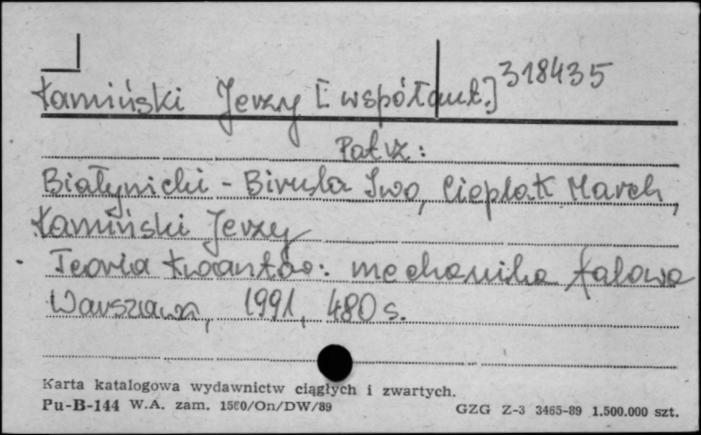 Kamiński Jerzy [współaut.] 318435
Patrz:
Białynicki-Birula Iwo, Cieplak Marek,
Kamiński Jerzy
Teoria kwantów: mechanika falowa
Warszawa, 1991, 480 s.
Karta katalogowa wydawnictw ciągłych i zwartych.
Pu-B-144 W.A. zam. 1580/On/DW/89 GZG Z-3 3465-89 1.500.000 szt.